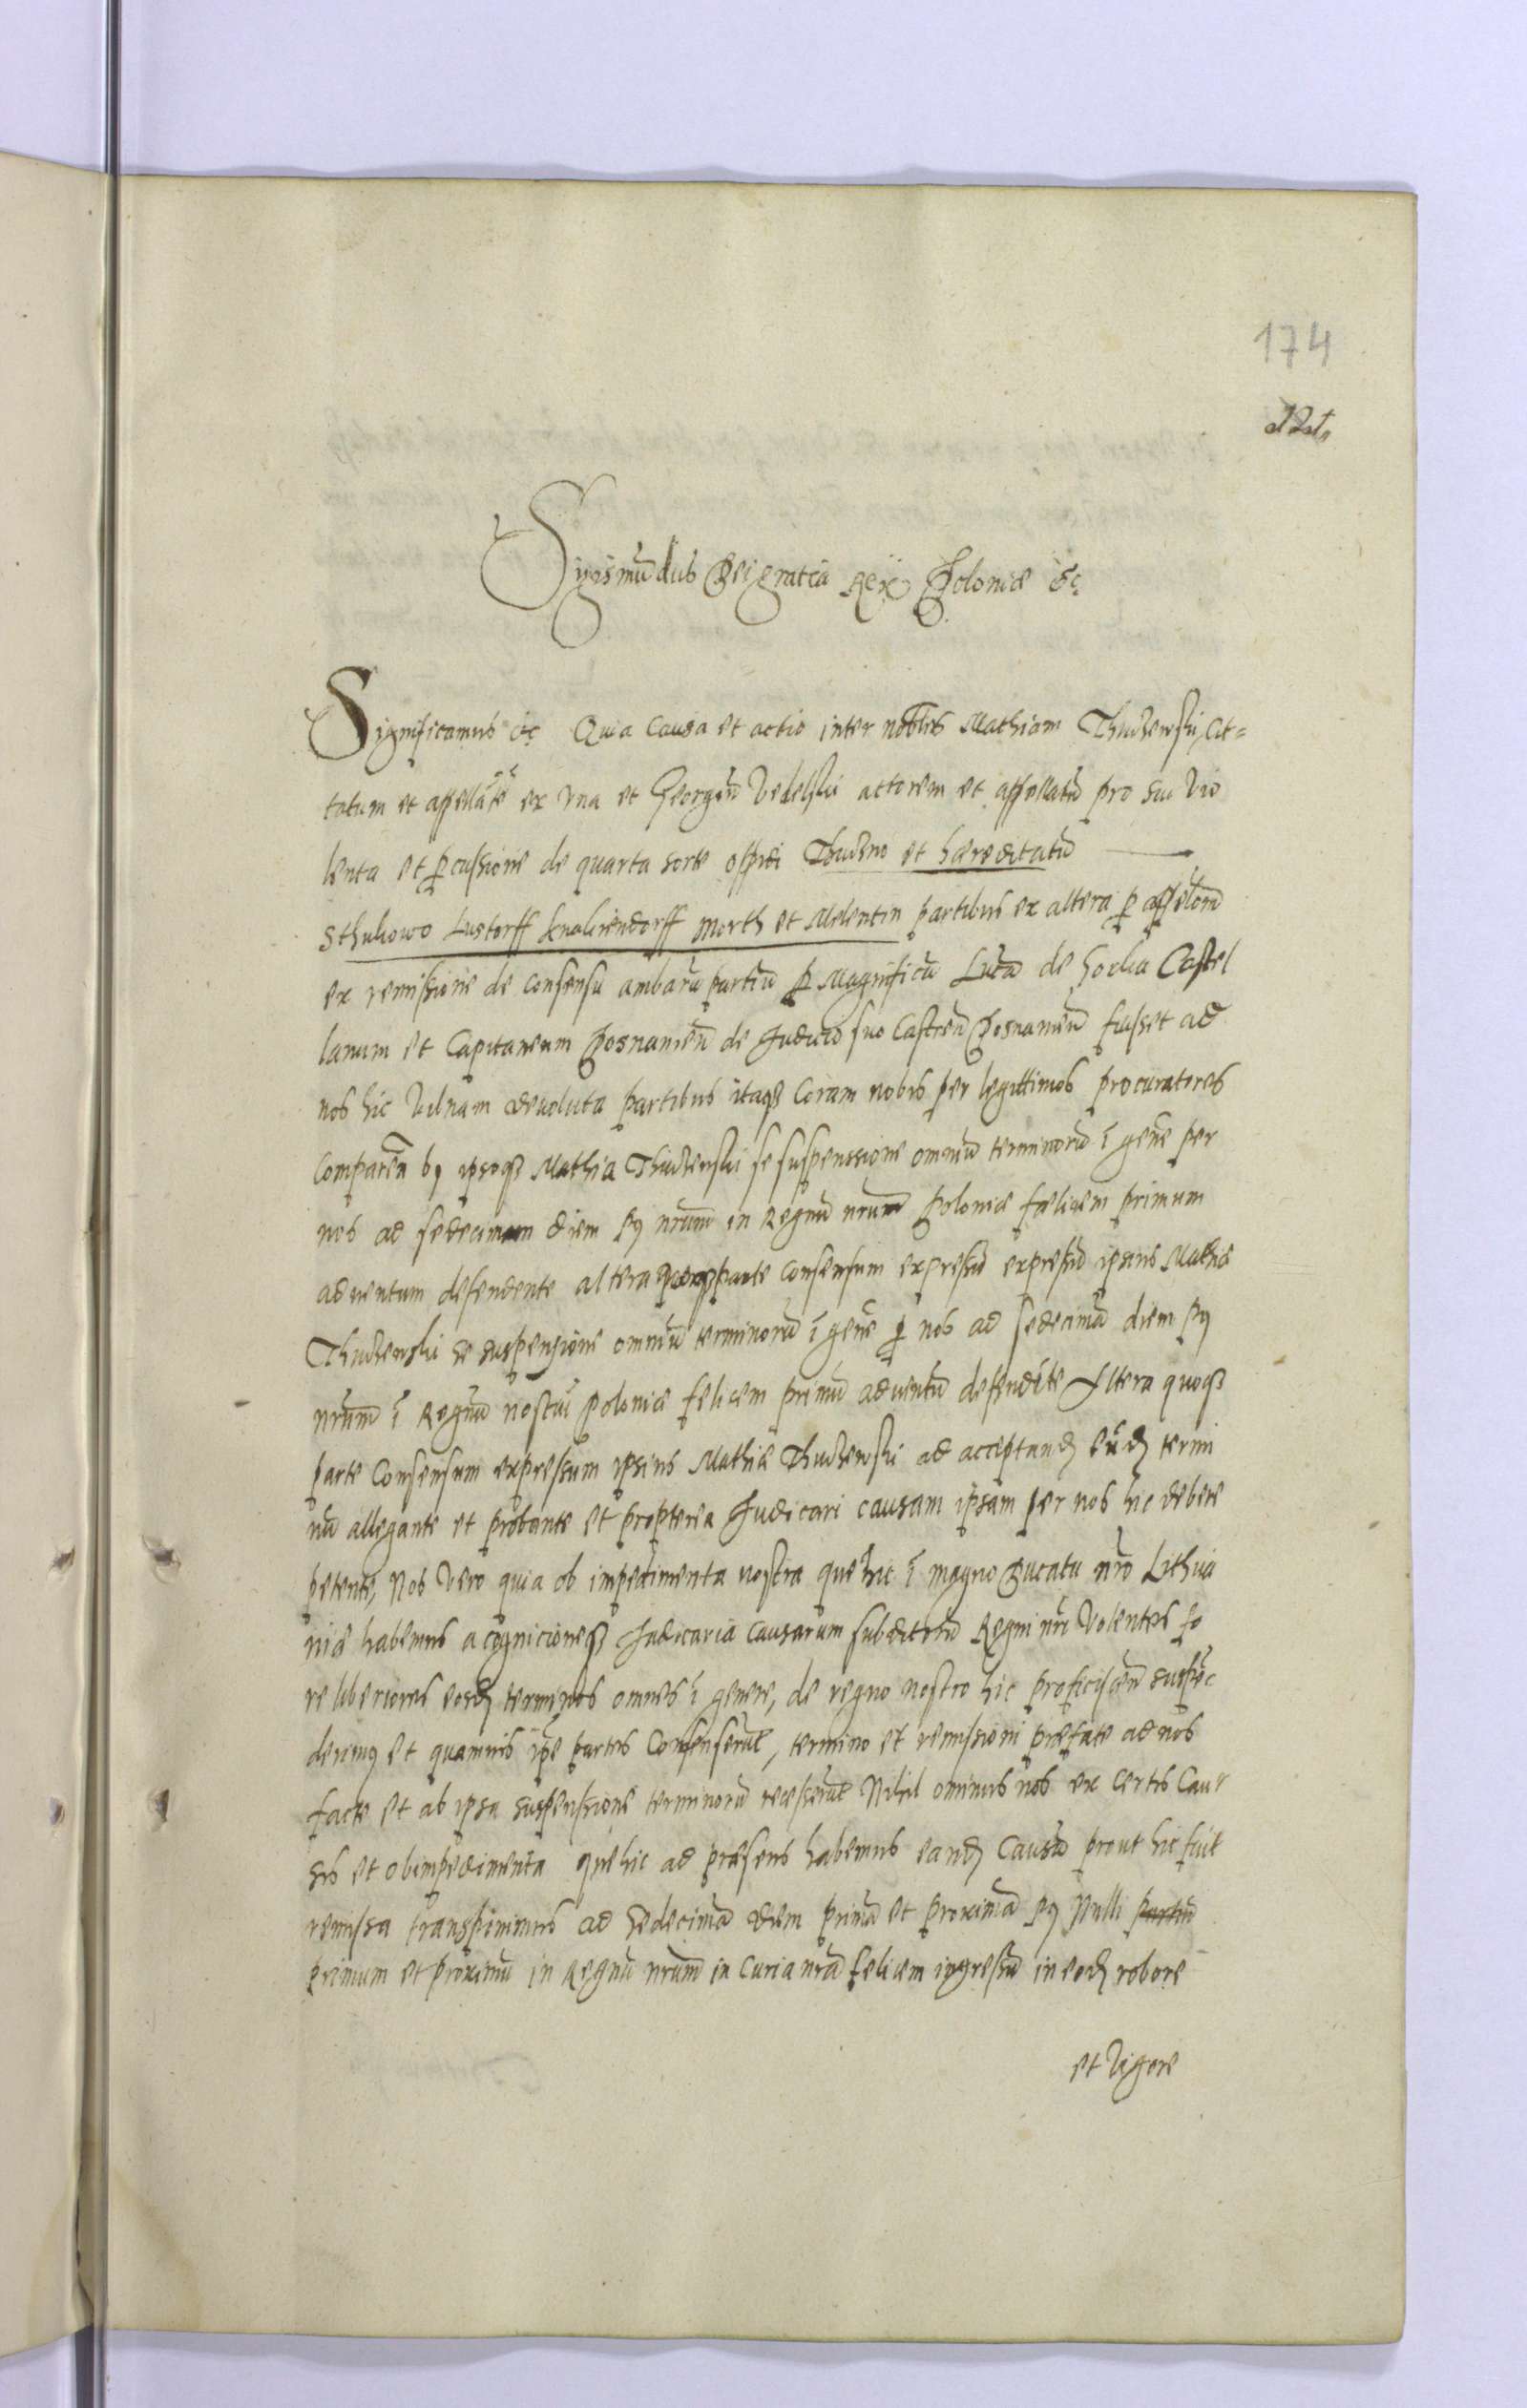 174
Sigismūdus Dei gratia Rex Poloniæ &c
Significamus &c Quia Causa et actio inter nobiles Mathiam Thuczenski, Cit=
tatum et appellātē ex Vna et Georgiū Vedelski actorem et appellatū pro Vio
lenta et ꝑcussione de quarta sorte oppidi Thuczno et hæreditatū
Sthuhowo Lustorff Knakiendorff Morth et Melentin partibus ex altera ꝑ appellōnē
ex remissione de Consensu ambarū partiū ꝑ Magnificū Lucā de Gorka Castel
lanum et Capitaneum Posnaniēn de Judicio suo Castrēn Posnaniēn fuisset ad
nos hic Vilnam devoluta partibus itaqȝ Coram nobis per legittimos procuratores
Comparēn bꝰ ipsoqȝ Mathia Thuczenski se suspenssione omniū terminorū ī genē per
nos ad sedecimam diem pꝰ nrūm in Regnū nrūm Poloniæ fælicem primum
aduentum defendente altera parte Consensum expressū expressū ipsius Mathiæ
Thuczenski se suspensione omniū terminorū ī genē ꝑ nos ad sedecimā diem pꝰ
nrūm ī Regnū nostrū Poloniæ felicem primū aduentū defendēte Altera quoqȝ
parte Consensum expressum ipsius Mathiæ Thuczenski ad acceptandū eūdē termi
nū allegante et probante et propterea Judicari causam ipsam per nos hic debere
petente, Nos Vero quia ob impedimenta nostra que hic ī magno Ducatu nrō Lithua
niæ habemus a cognicioneqȝ Judicaria causarum subditorū Regni nrī Volentes fo
re liberiores eosdē terminos omnes ī genere, de regno nostro hic proficiscēn suspēn
derimꝰ et quamuis ipē partes Consenserūt, termino et remissioni præfate ad nos
facte et ab ipsa suspenssione terminorū recesserūt Nihil ominus nos ex Certis Cau
sis et ob impedimenta que hic ad præsens habemus eandē Causā prout hic fuit
remissa transponimus ad sedecimā diem primā et proximā pꝰ Nulli partiū
primum et proximū in Regnū nrūm in Curia nrā felicem ingressū in eodē robore
et Vigore